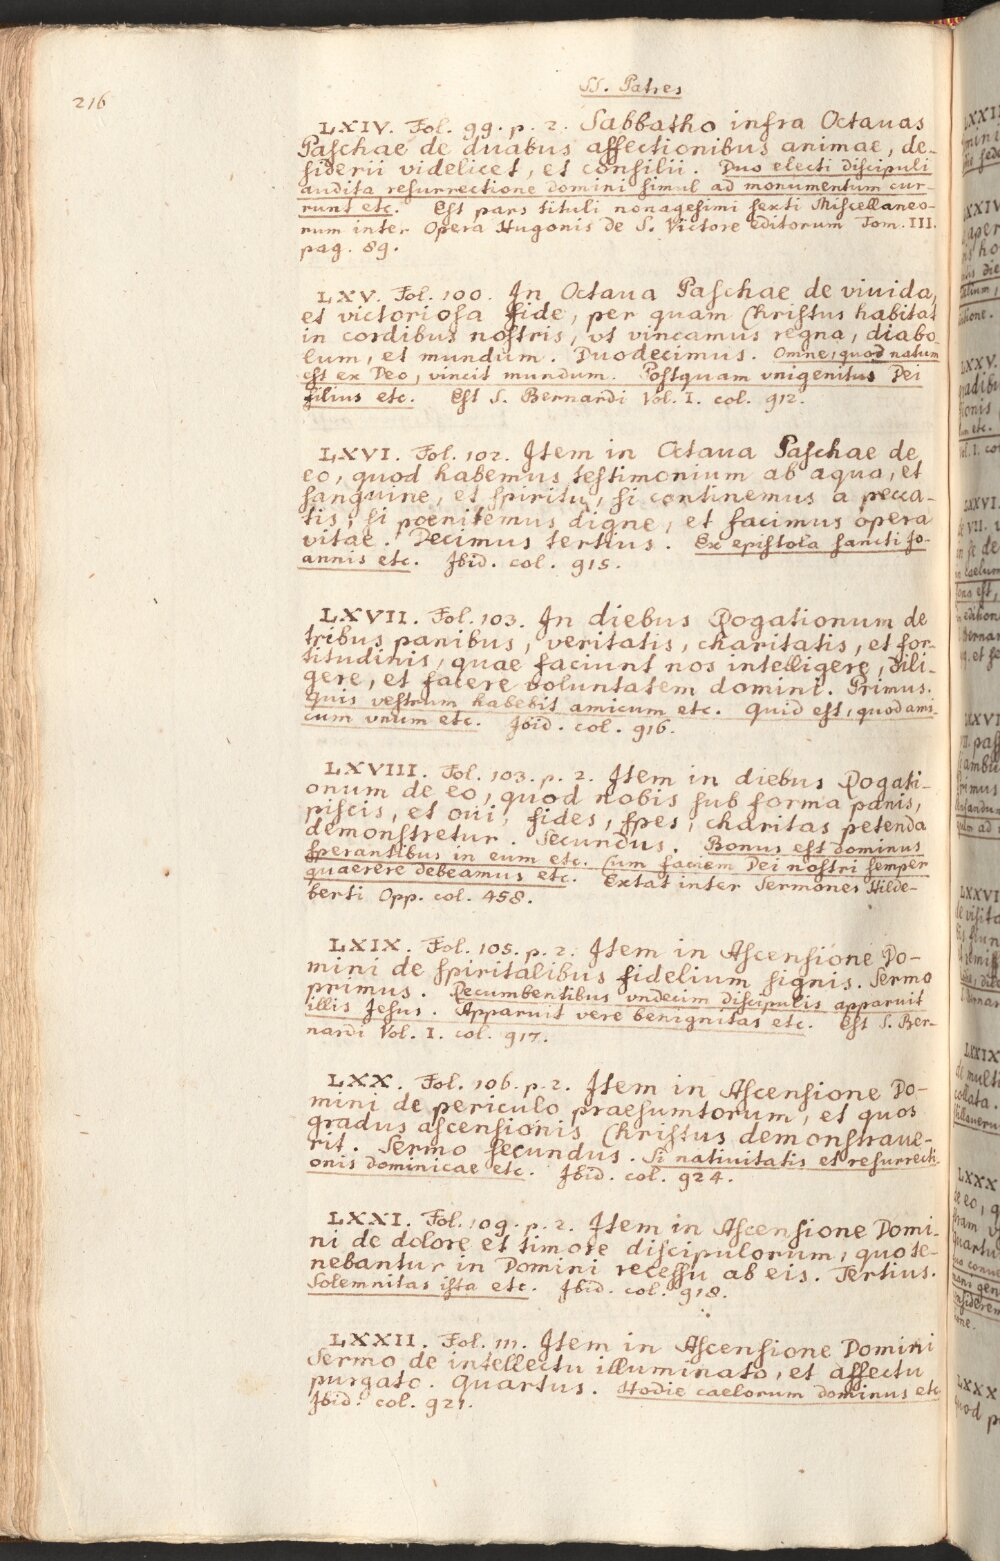 216
SS. Patres
LXIV. Fol. 99. p. 2. Sabbatho infra Octauas
Paschae de duabus affectionibus animae, de-
siderii videlicet, et consilii. Duo electi discipuli
audita resurrectione domini simul ad monumentum cur-
runt etc. Est pars tituli nonagesimi sexti Miscellaneo-
rum inter Opera Hugonis de S. Victore editorum Tom. III.
pag. 89.
LXV. Fol. 100. In Octaua Paschae de viuida,
et victoriosa fide, per quam Christus habitat
in cordibus nostris, vt vincamus regna, diabo-
lum, et mundum. Duodecimus. Omne, quod natum
est ex Deo, vincit mundum. Postquam vnigenitus Dei
filius etc. Est S. Bernardi Vol. I. col. 912.
LXVI. Fol. 102. Item in Octaua Paschae de
eo, quod habemus testimonium ab aqua, et
sanguine, et spiritu, si continemus a pecca-
tis, si poenitemus digne, et facimus opera
vitae. Decimus tertius. Ex epistola sancti Jo-
annis etc. Ibid. col. 915.
LXVII. Fol. 103. In diebus Rogationum de
tribus panibus, veritatis, charitatis, et for-
titudinis, quae faciunt nos intelligere, dili-
gere, et facere voluntatem domini. Primus.
Quis vestrum habebit amicum etc. Quid est, quod ami-
cum vnum etc. Ibid. col. 916.
LXVIII. Fol. 103. p. 2. Item in diebus Rogati-
onum de eo, quod nobis sub forma panis,
piscis, et oui, fides, spes, charitas petenda
demonstretur. Secundus. Bonus est dominus
sperantibus in eum etc. Cum faciem Dei nostri semper
quaerere debeamus etc. Extat inter Sermones Hilde-
berti Opp. col. 458.
LXIX. Fol. 105. p. 2. Item in Ascensione Do-
mini de spiritalibus fidelium signis. Sermo
primus. Recumbentibus vndecim discipulis apparuit
illis Jesus. Apparuit vere benignitas etc. Est S. Ber-
nardi Vol. I. col. 917.
LXX. Fol. 106. p. 2. Item in Ascensione Do-
mini de periculo praesumtorum, et quos
gradus ascensionis Christus demonstraue-
rit. Sermo secundus. Si natiuitatis et resurrecti-
onis dominicae etc. Ibid. col. 924.
LXXI. Fol. 109. p. 2. Item in Ascensione Domi-
ni de dolore et timore discipulorum, quo te-
nebantur in Domini recessu ab eis. Tertius.
Solemnitas ista etc. Ibid. col. 918.
LXXII. Fol. 111. Item in Ascensione Domini
Sermo de intellectu illuminato, et affectu
purgato. Quartus. Hodie caelorum dominus etc
Ibid. col. 921.